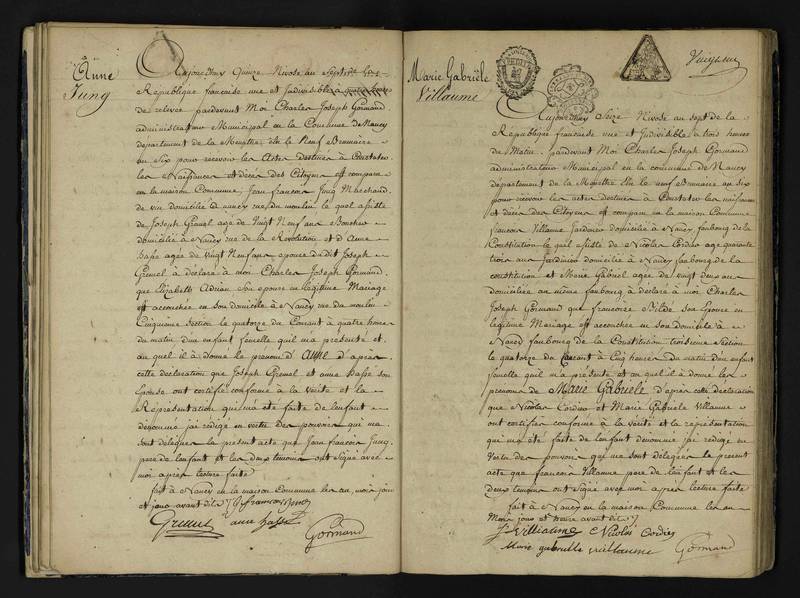 Anne
Jung
Aujourd'huy Quinze Nivose an Sept de la
Republique francaise une et Indivisible
de relevée pardevant Moi Charles Joseph Gormand
administrateur Municipal en la Commune de Nancy
departement de la Meurthe élu le Neuf Brumaire
an Six pour recevoir les Actes destinés à Constater
les Naissances et décès des Citoyens est comparu
en la maison Commune Jean francois Jung Marchand
de vin domicilié à nancy rue du moulin lequel assisté
de Joseph Grenel agé de Vingt Neuf ans
domicilié a Nancy rue de la Revolution et d'Anne
Hasse agée de vingt Neuf ans epouse dudit Joseph
Grenel à déclaré à moi Charles Joseph Gormand
que Elizabeth Adrian Son epouse en legitime Mariage
est accouchée en son domicile à Nancy rue du moulin
Cinquieme Section le quatorze du Courant à quatre heures
du matin d'un enfant femelle qu'il m'a presenté et
au quel il a donné le prenom d'Anne d'après
cette déclaration que Joseph Grenel et anne hasse Son
Epouse ont certifié conforme à la Verité et la
Representation qui m'a été faite de l'enfant
denommé j'ai redigé en vertu des pouvoirs qui me
sont delegués le present acte que Jean francois Jung
pere de l'enfant et les deux temoins ont signé avec
moi après lecture faite
fait à Nancy en la maison Commune les an, mois jour
et jour avant dits J francois Jung
Grenel anne hasse
Gormand
Marie Gabrièle
Villaume
Aujourd'huy Seize Nivose an Sept de la
Republique francaise une et Indivisible à trois heures
de Matin pardevant Moi Charles Joseph Gormand
administrateur Municipal en la commune de Nancy
departement de la Meurthe élu le neuf Brumaire an six
pour recevoir les actes destinés à Constater les naissances
et décès des Citoyens est comparu en la maison Commune
francois Villaume Jardinier domicilié à Nancy faubourg de la
Constitution lequel assisté de Nicolas Cordier agé quarante
trois ans Jardinier domicilié à Nancy faubourg de la
constitution et Marie Gabriel agée de vingt deux ans
domiciliée au même faubourg à déclaré à moi Charles
Joseph Gormand que francoise Son Epouse en
legitime Mariage est accouchée en son domicile à
Nancy faubourg de la Constitution troisieme Section
le quatorze du Courant à Cinq heures du matin d'un enfant
femelle qu'il m'a présenté et au quel il à donné les
prenoms de Marie Gabrièle d'après cette déclaration
que Nicolas Cordier et Marie Gabriele Villaume
ont certifié conforme à la verité et la représentation
qui m'a été faite de l'enfant denommé j'ai redigé en
Vertu des pouvoirs qui me sont delegués le present
acte que francois Villaume pere de l'enfant et les
deux temoins ont signé avec moi après lecture faite
fait à Nancy en la maison Commune les an
Mois jour et heure avant dits
f Villiaume Nicolas Cordier
Marie gabrielle villaume Gormand